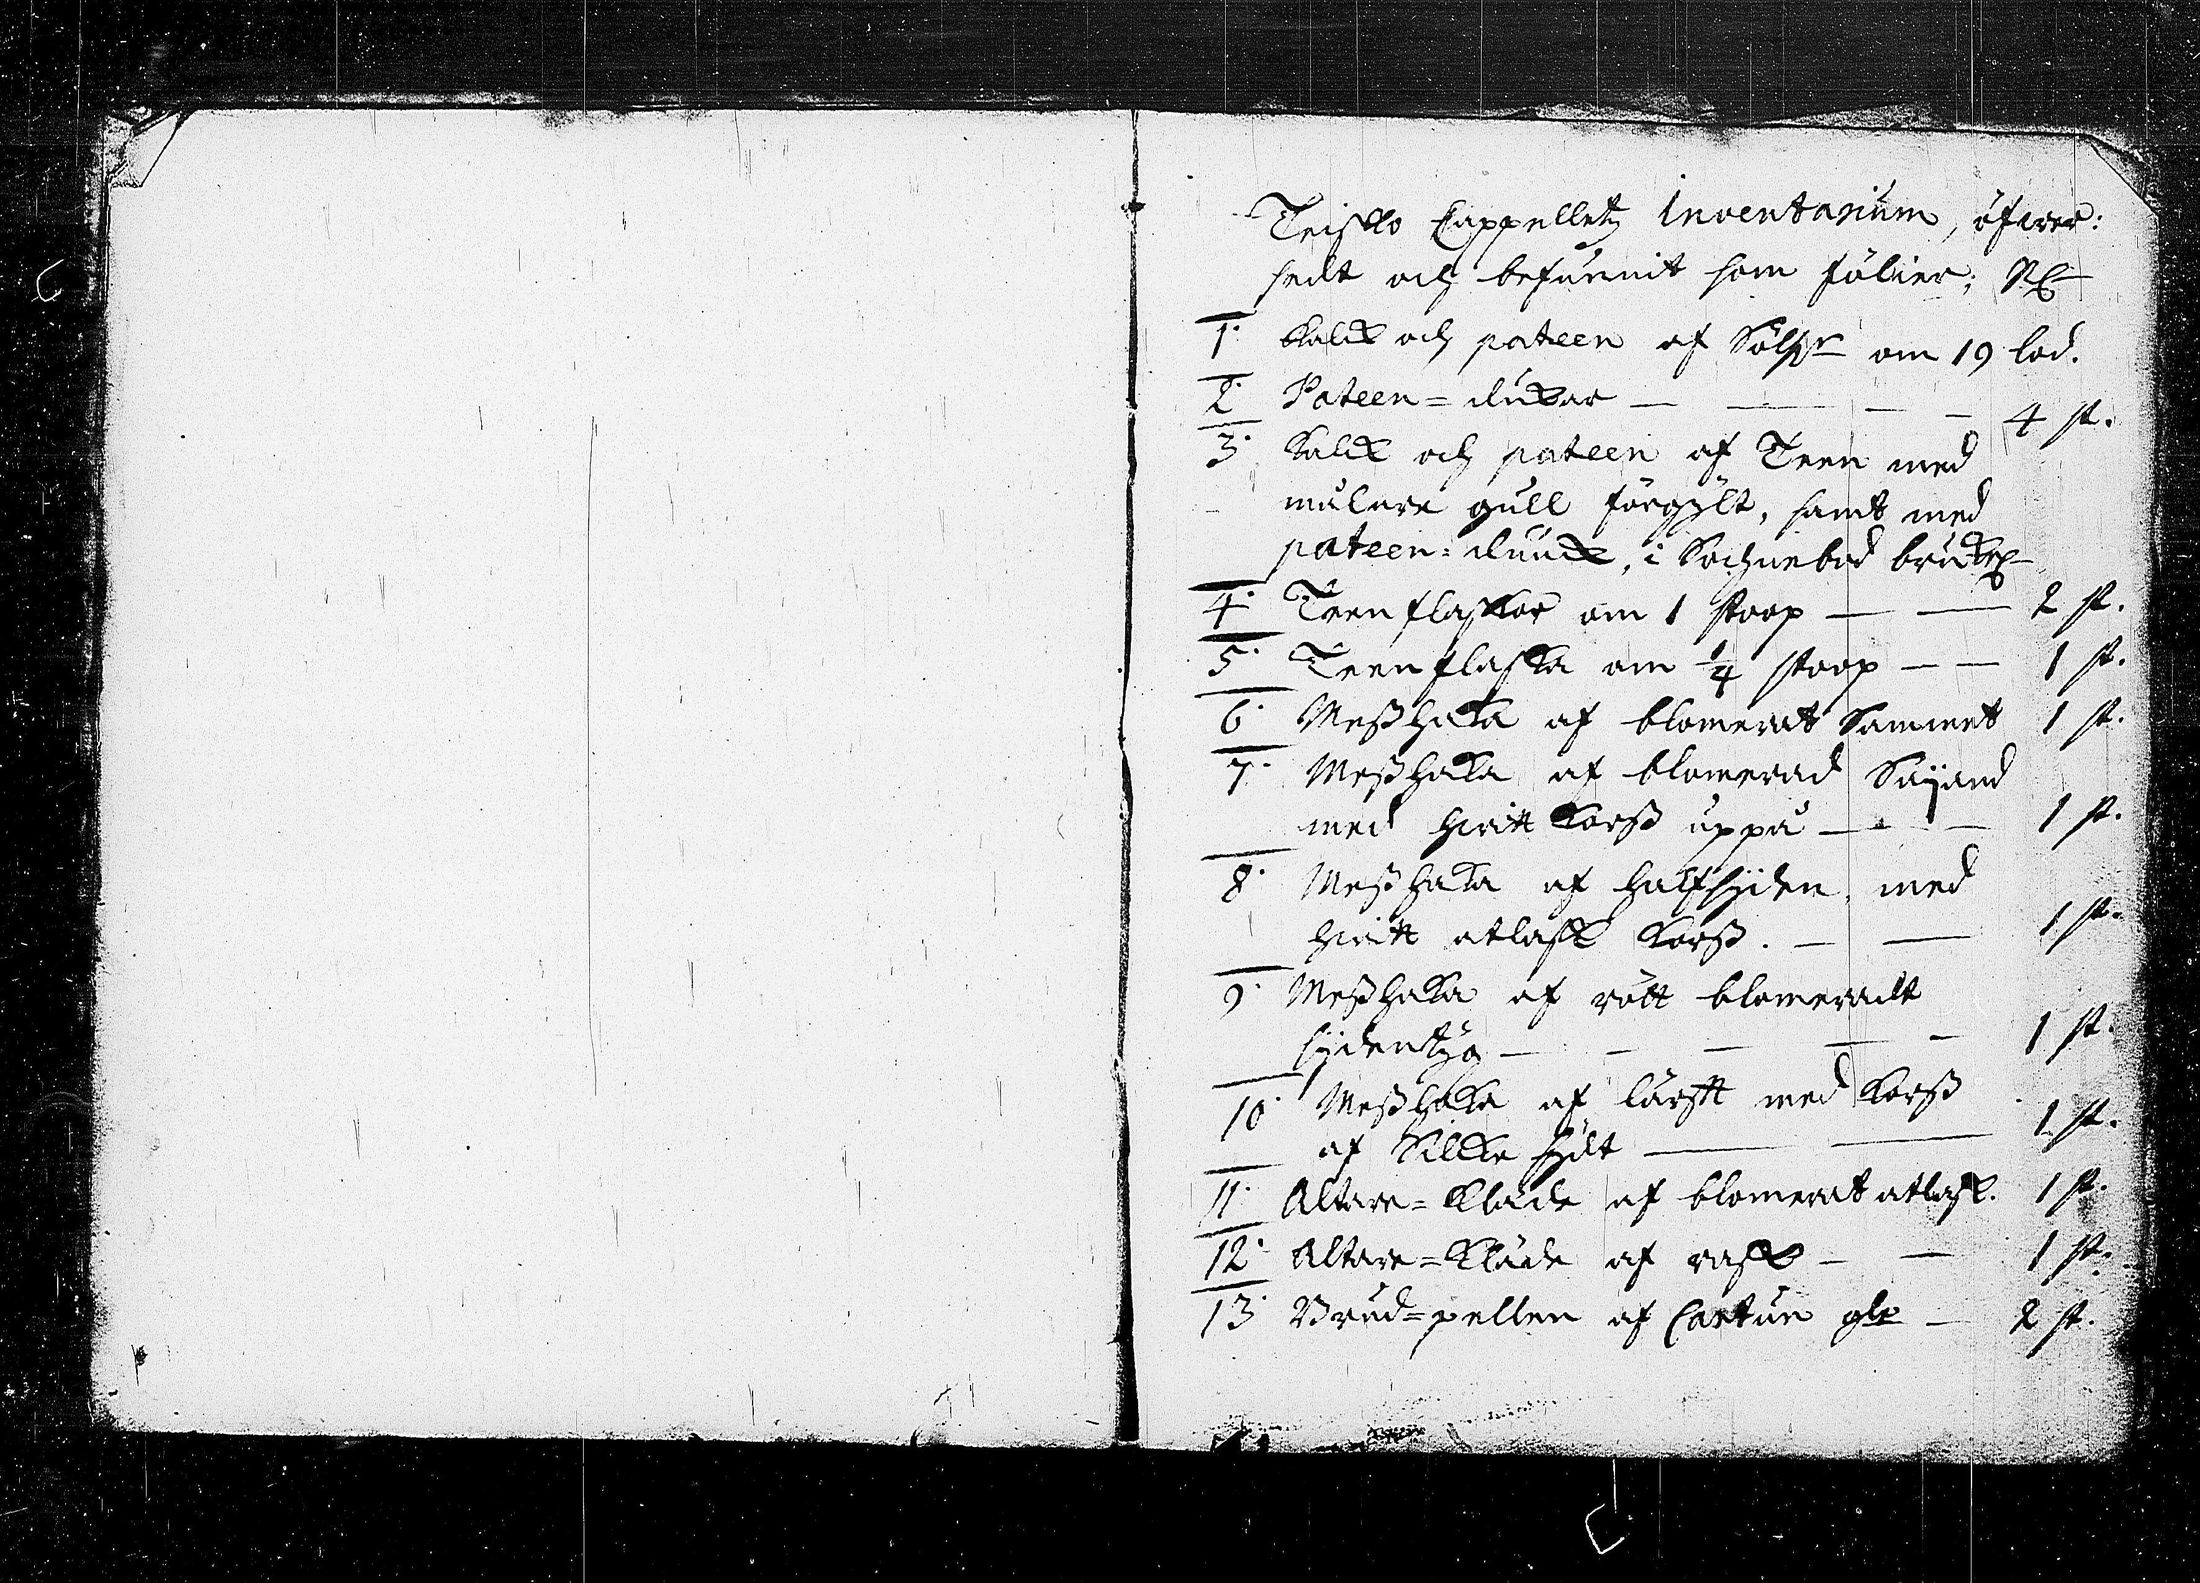 Teisko Cappelletz Inventarium, öfwer:
sedt och befunnit som fölier;
1. Kalck och pateen af Sölfr om 19 lod.
2. Pateen=dukar — — — — 4 st.
3. Kalck och pateen af Teen med
målare gull förgylt, samt med
pateen=duuck, i Sochnebod
4. Teenflaskor om 1 stoop — — 2 st.
5. Teenflaska om 1/4 stoop — — 1 st.
6. Messhaka af blomerat Sammet 1 st.
7. Messhaka af blomerad
med hwitt Korss uppå — — 1 st.
8. Messhaka af halfsijden, med
hwitt atlask Korss. — — 1 st.
9. Messhaka af rött blomeradt
sijdentyg — — — — — 1 st.
10. Messhaka af lärfft med Korss
af Silke sydt — — 1 st.
11. Altare=Kläde af blomerat atlask. 1 st.
12. Altare=Kläde af rask — — 1 st.
13. Brud=pellen af Cartun — 2 st.